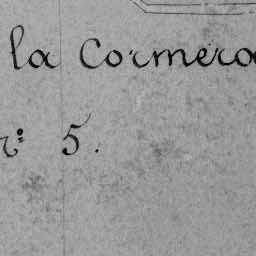 la Cormera
r: 5.